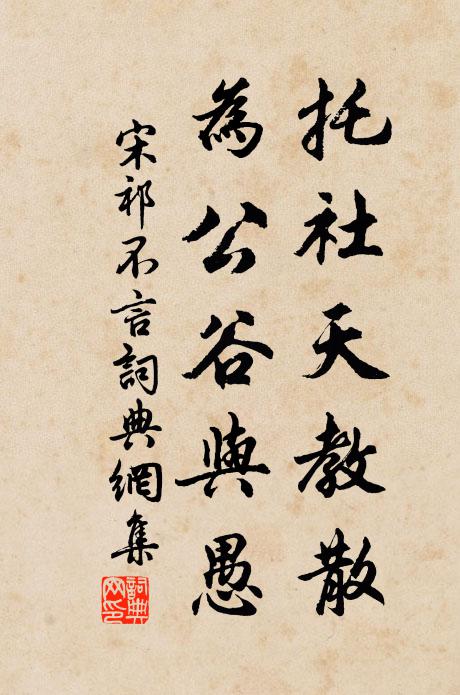 托社天教散
為公谷與愚
宋祁不言詞典網集
詞典网印